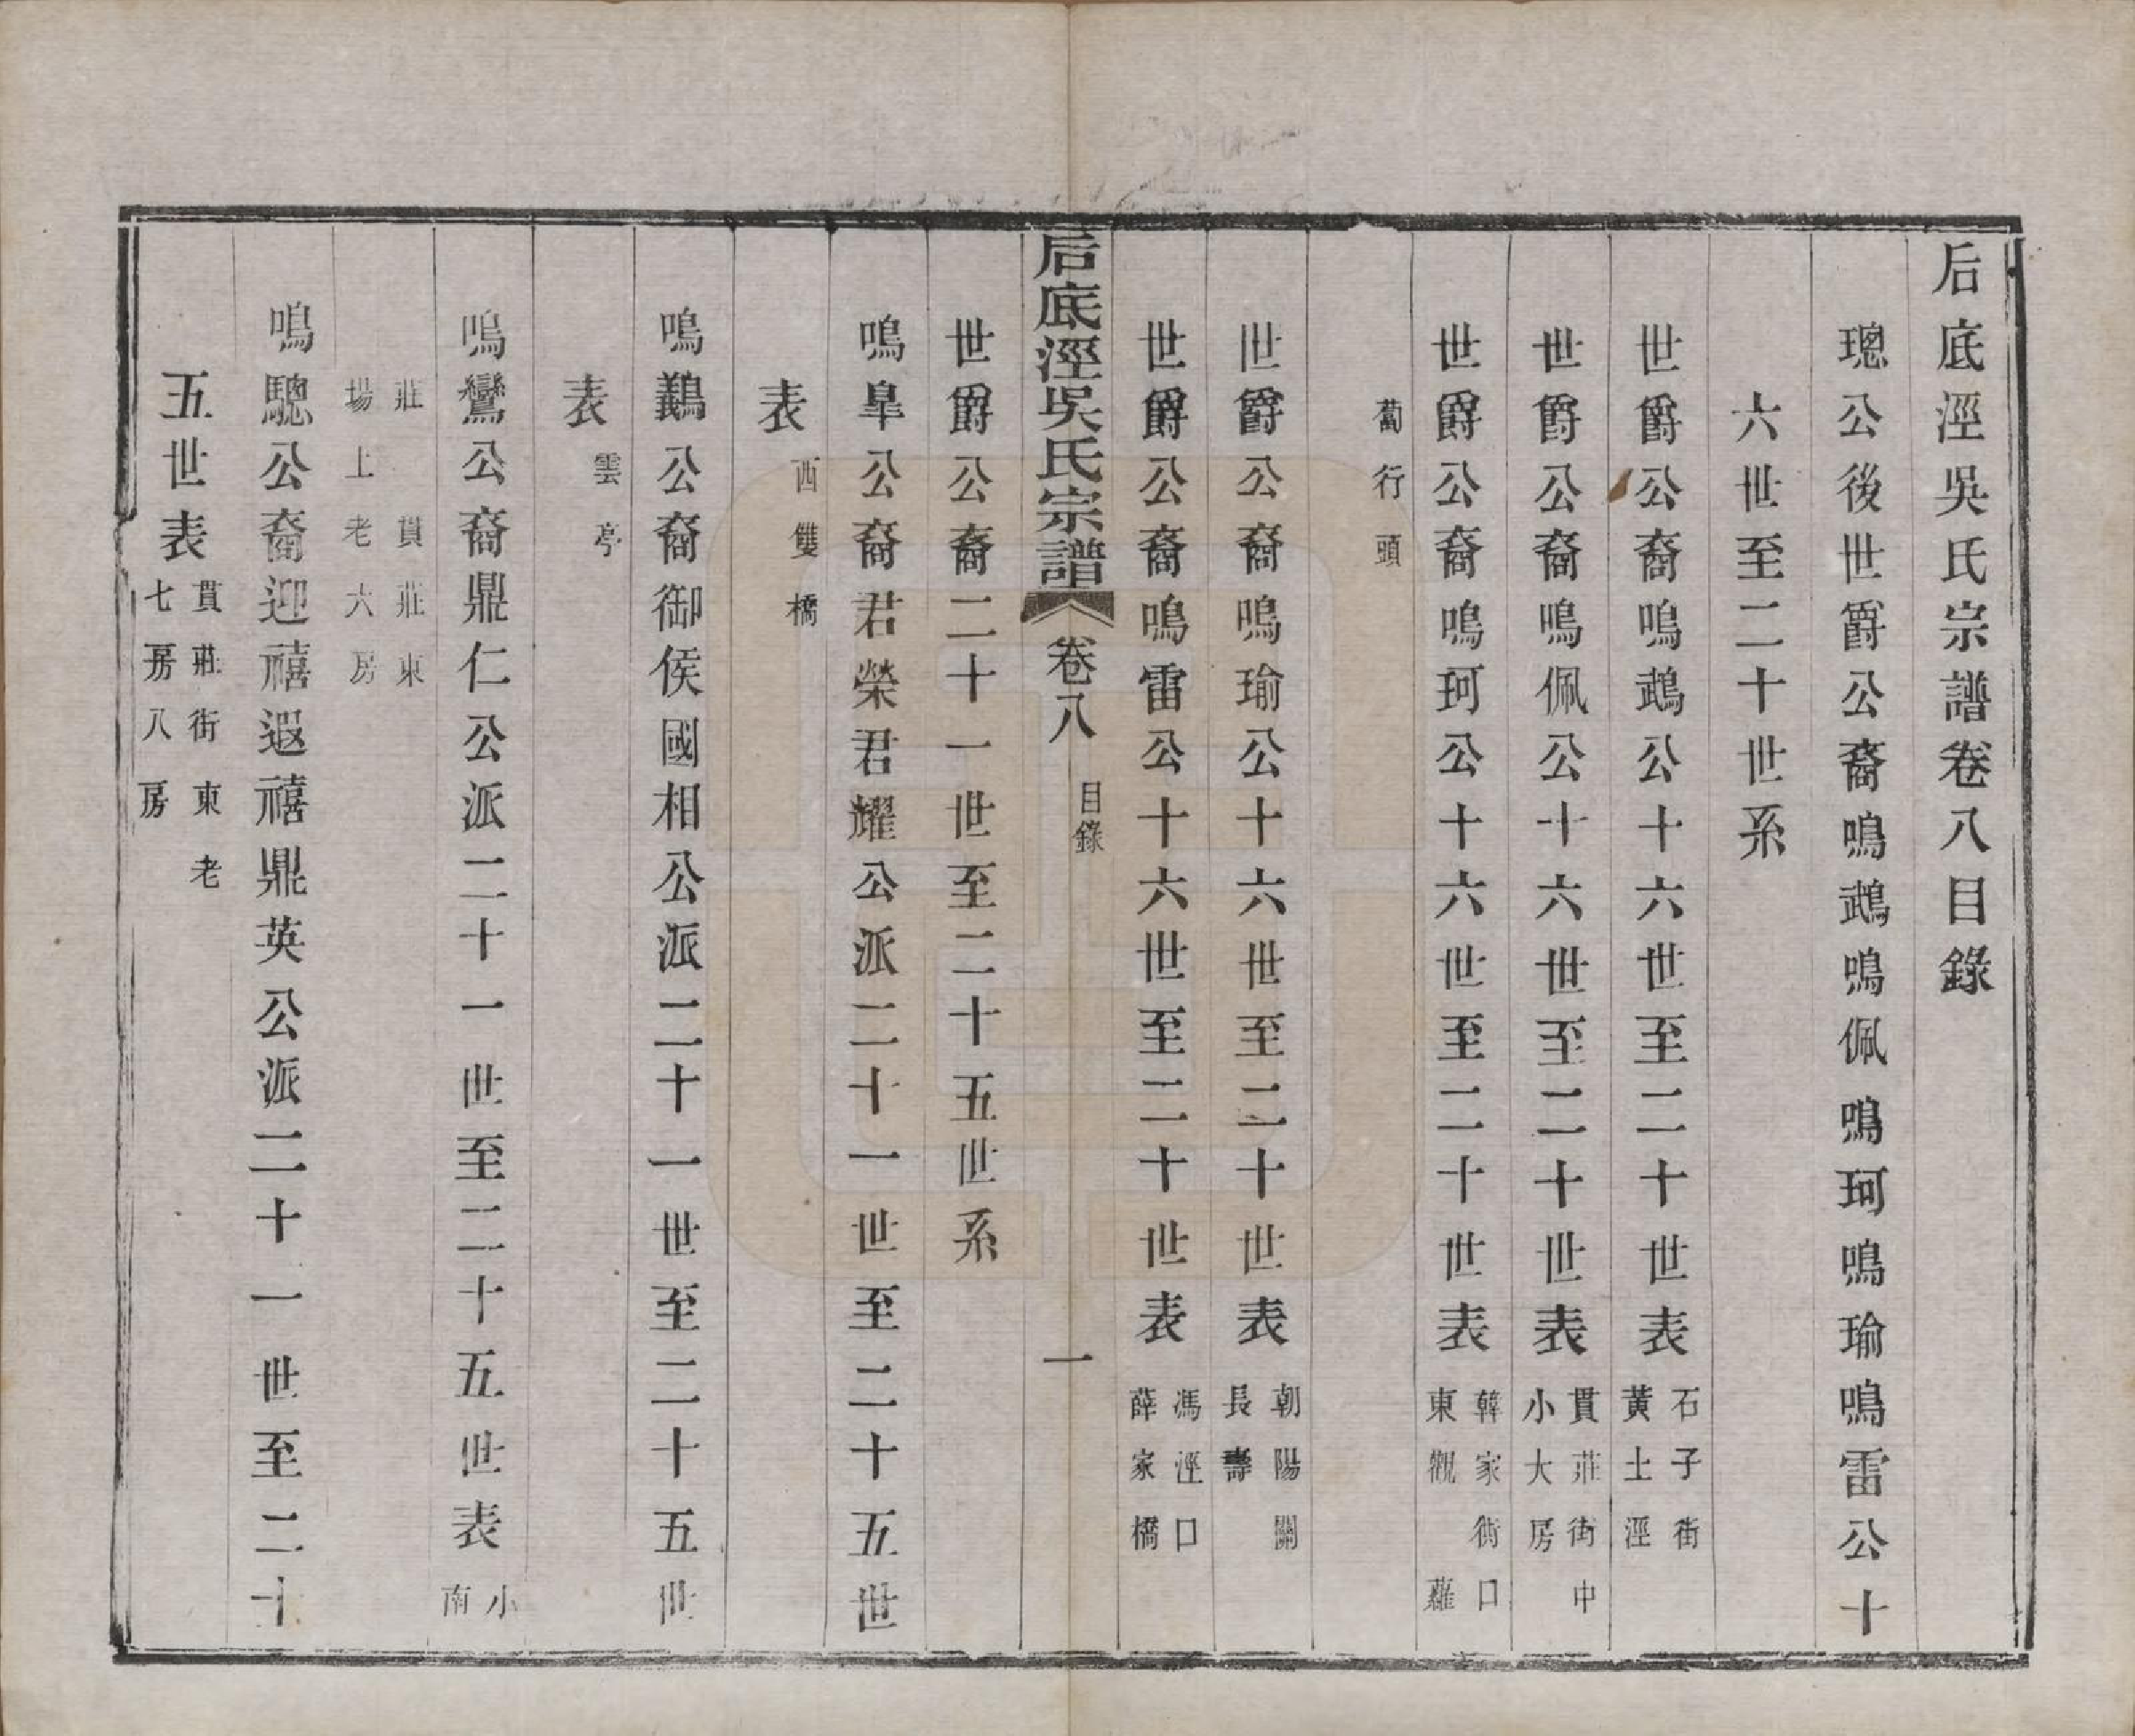 后底涇吳氏宗譜卷八目錄
璁公後世爵公裔鳴鵡鳴佩鳴珂鳴瑜鳴雷公十
六世至二十世系
世爵公裔鳴鵡公十六世至二十世表 石子街
黃土涇
世爵公裔鳴佩公十六世至二十世表 貫莊街中
小大房
世爵公裔鳴珂公十六世至二十世表 韓家街口
東觀蘿
蔔行頭
世爵公裔鳴瑜公十六世至二十世表 朝陽關
長壽
世爵公裔鳴雷公十六世至二十世表 馮涇口
薛家橋
后底涇吳氏宗譜 卷八 目錄 一
世爵公裔二十一世至二十五世系
鳴皐公裔君榮君耀公派二十一世至二十五世
表 西雙橋
鳴鷬公裔御侯國相公派二十一世至二十五世
表 雲亭
鳴鸞公裔鼎仁公派二十一世至二十五世表 小
南
莊 貫莊東
場上老六房
鳴驄公裔迎禧遐禧鼎英公派二十一世至二十
五世表 貫莊街東老
七房八房